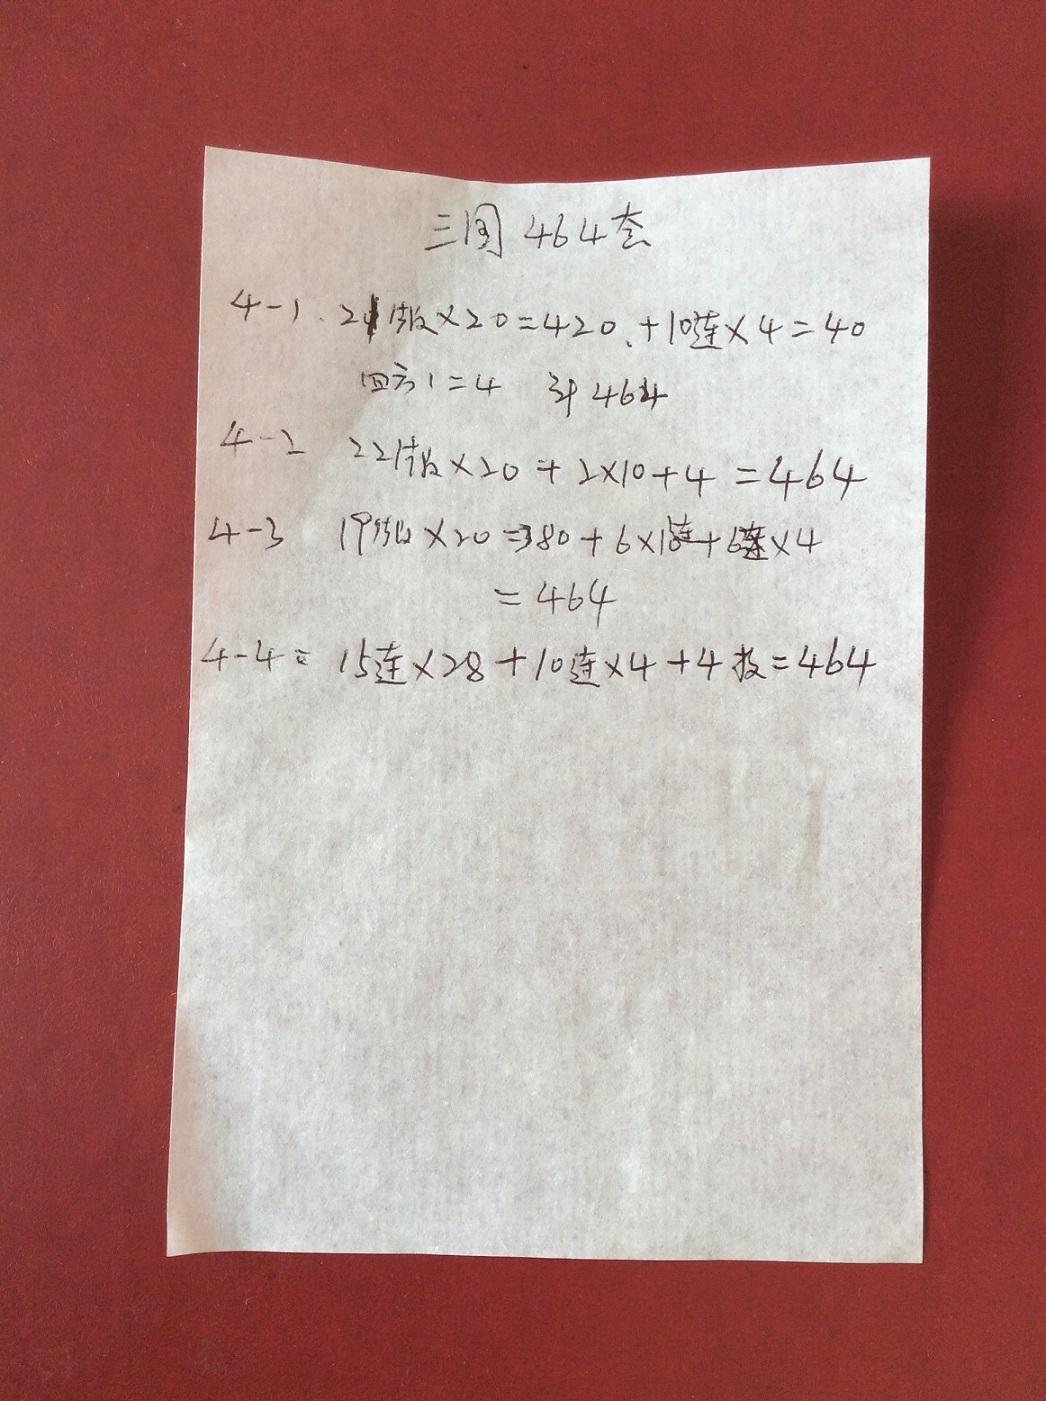 三国 464套
4-1. 21版×20=420.+10连×4=40
四方1=4 计464
4-2 22版×20+2×10+4=464
4-3 19版×20=380+6×10连+6连×4
=464
4-4= 15连×28+10连×4+4枚=464